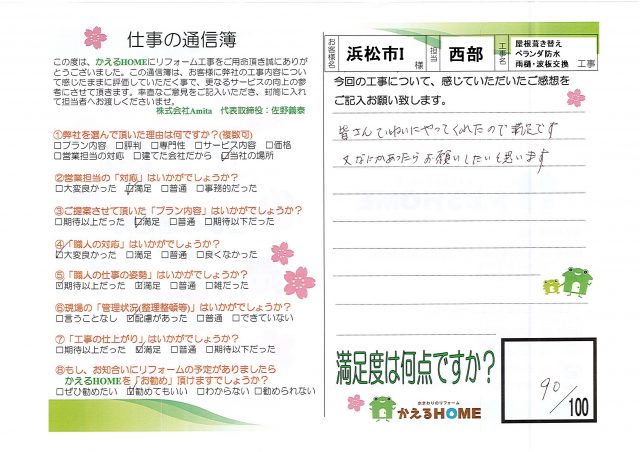 仕事の通信簿
この度は、かえるHOMEにリフォーム工事をご用命頂き誠にありが
とうございました。この通信簿は、お客様に弊社の工事内容につい
て感じたままに評価していただく事で、更なるサービスの向上の参
考にさせて頂きます。率直なご意見をご記入いただき、封筒に入れ
て担当者へお渡しくださいませ。
株式会社Amita 代表取締役:佐野義泰
①弊社を選んで頂いた理由は何ですか?(複数可)
□プラン内容 □評判 □専門性 □サービス内容 □価格
□営業担当の対応 □建てた会社だから ☑当社の場所
②営業担当の「対応」はいかがでしょうか?
□大変良かった ☑満足 □普通 □事務的だった
③ご提案させて頂いた「プラン内容」はいかがでしょうか?
□期待以上だった ☑満足 □普通 □期待以下だった
④「職人の対応」はいかがでしょうか?
☑大変良かった □満足 □普通 □良くなかった
⑤「職人の仕事の姿勢」はいかがでしょうか?
□期待以上だった ☑満足 □普通 □雑だった
⑥現場の「管理状況(整理整頓等)」はいかがでしょうか?
□言うことなし ☑配慮があった □普通 □できていない
⑦「工事の仕上がり」はいかがでしょうか?
□期待以上だった ☑満足 □普通 □期待以下だった
⑧もし、お知合いにリフォームの予定がありましたら
かえるHOMEを「お勧め」頂けますでしょうか?
□ぜひ勧めたい ☑勧めてもいい □わからない □勧められない
お客様名 浜松市I 様 担当 西部 工事名 屋根葺き替え
ベランダ防水
雨樋・波板交換 工事
今回の工事について、感じていただいたご感想を
ご記入お願い致します。
皆さんていねいにやってくれたので満足です
又なにかあったらお願いしたいと思います
満足度は何点ですか?
90/100
水まわりのリフォーム
かえるHOME